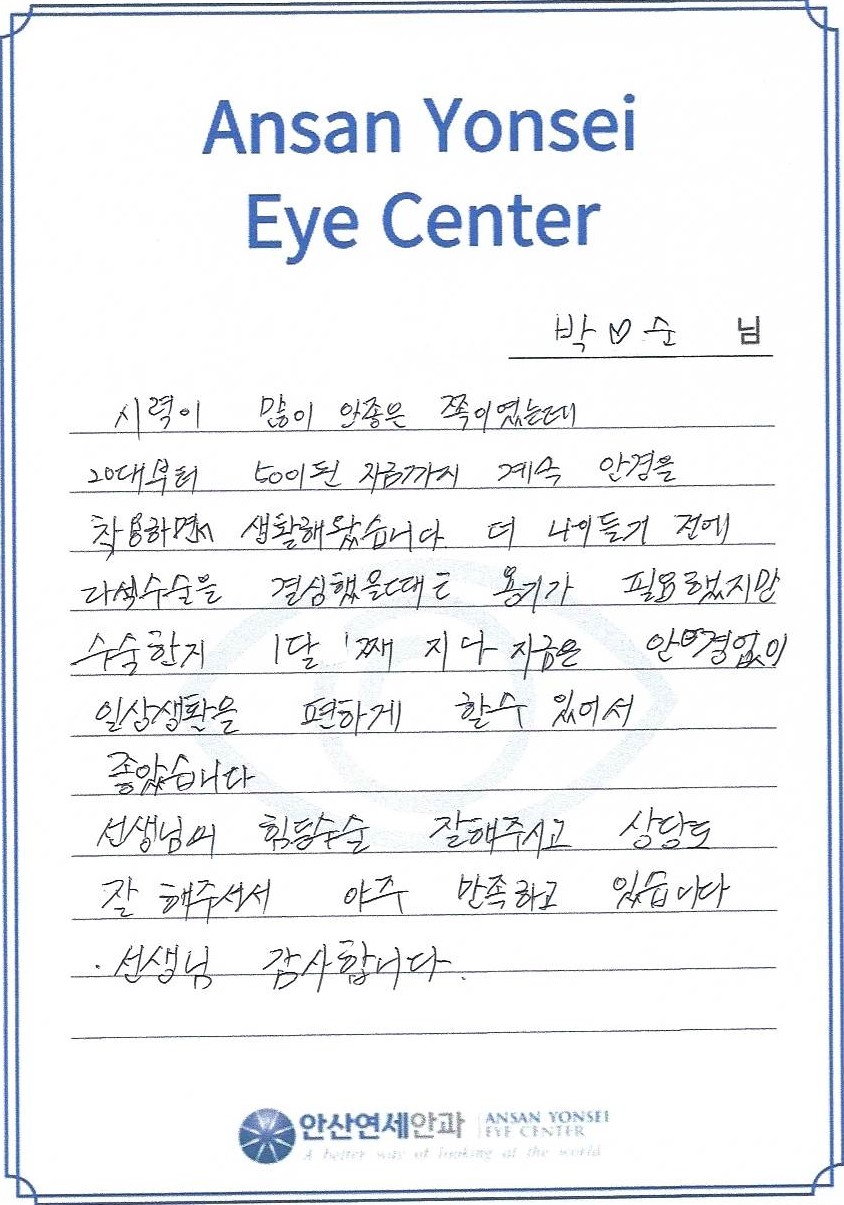 Ansan Yonsei
Eye Center
박♡순 님
시력이 많이 안좋은 쪽이였는데
20대부터 50이된 지금까지 계속 안경을
착용하면서 생활해왔습니다 더 나이들기 전에
다색수술을 결심했을때도 용기가 필요했지만
수술한지 1달 째 지나 지금은 안경없이
일상생활을 편하게 할수 있어서
좋았습니다
선생님의 힘든수술 잘해주시고 상담도
잘 해주셔서 아주 만족하고 있습니다
· 선생님 감사합니다.
안산연세안과 ANSAN YONSEI
EYE CENTER
A better way of looking at the world